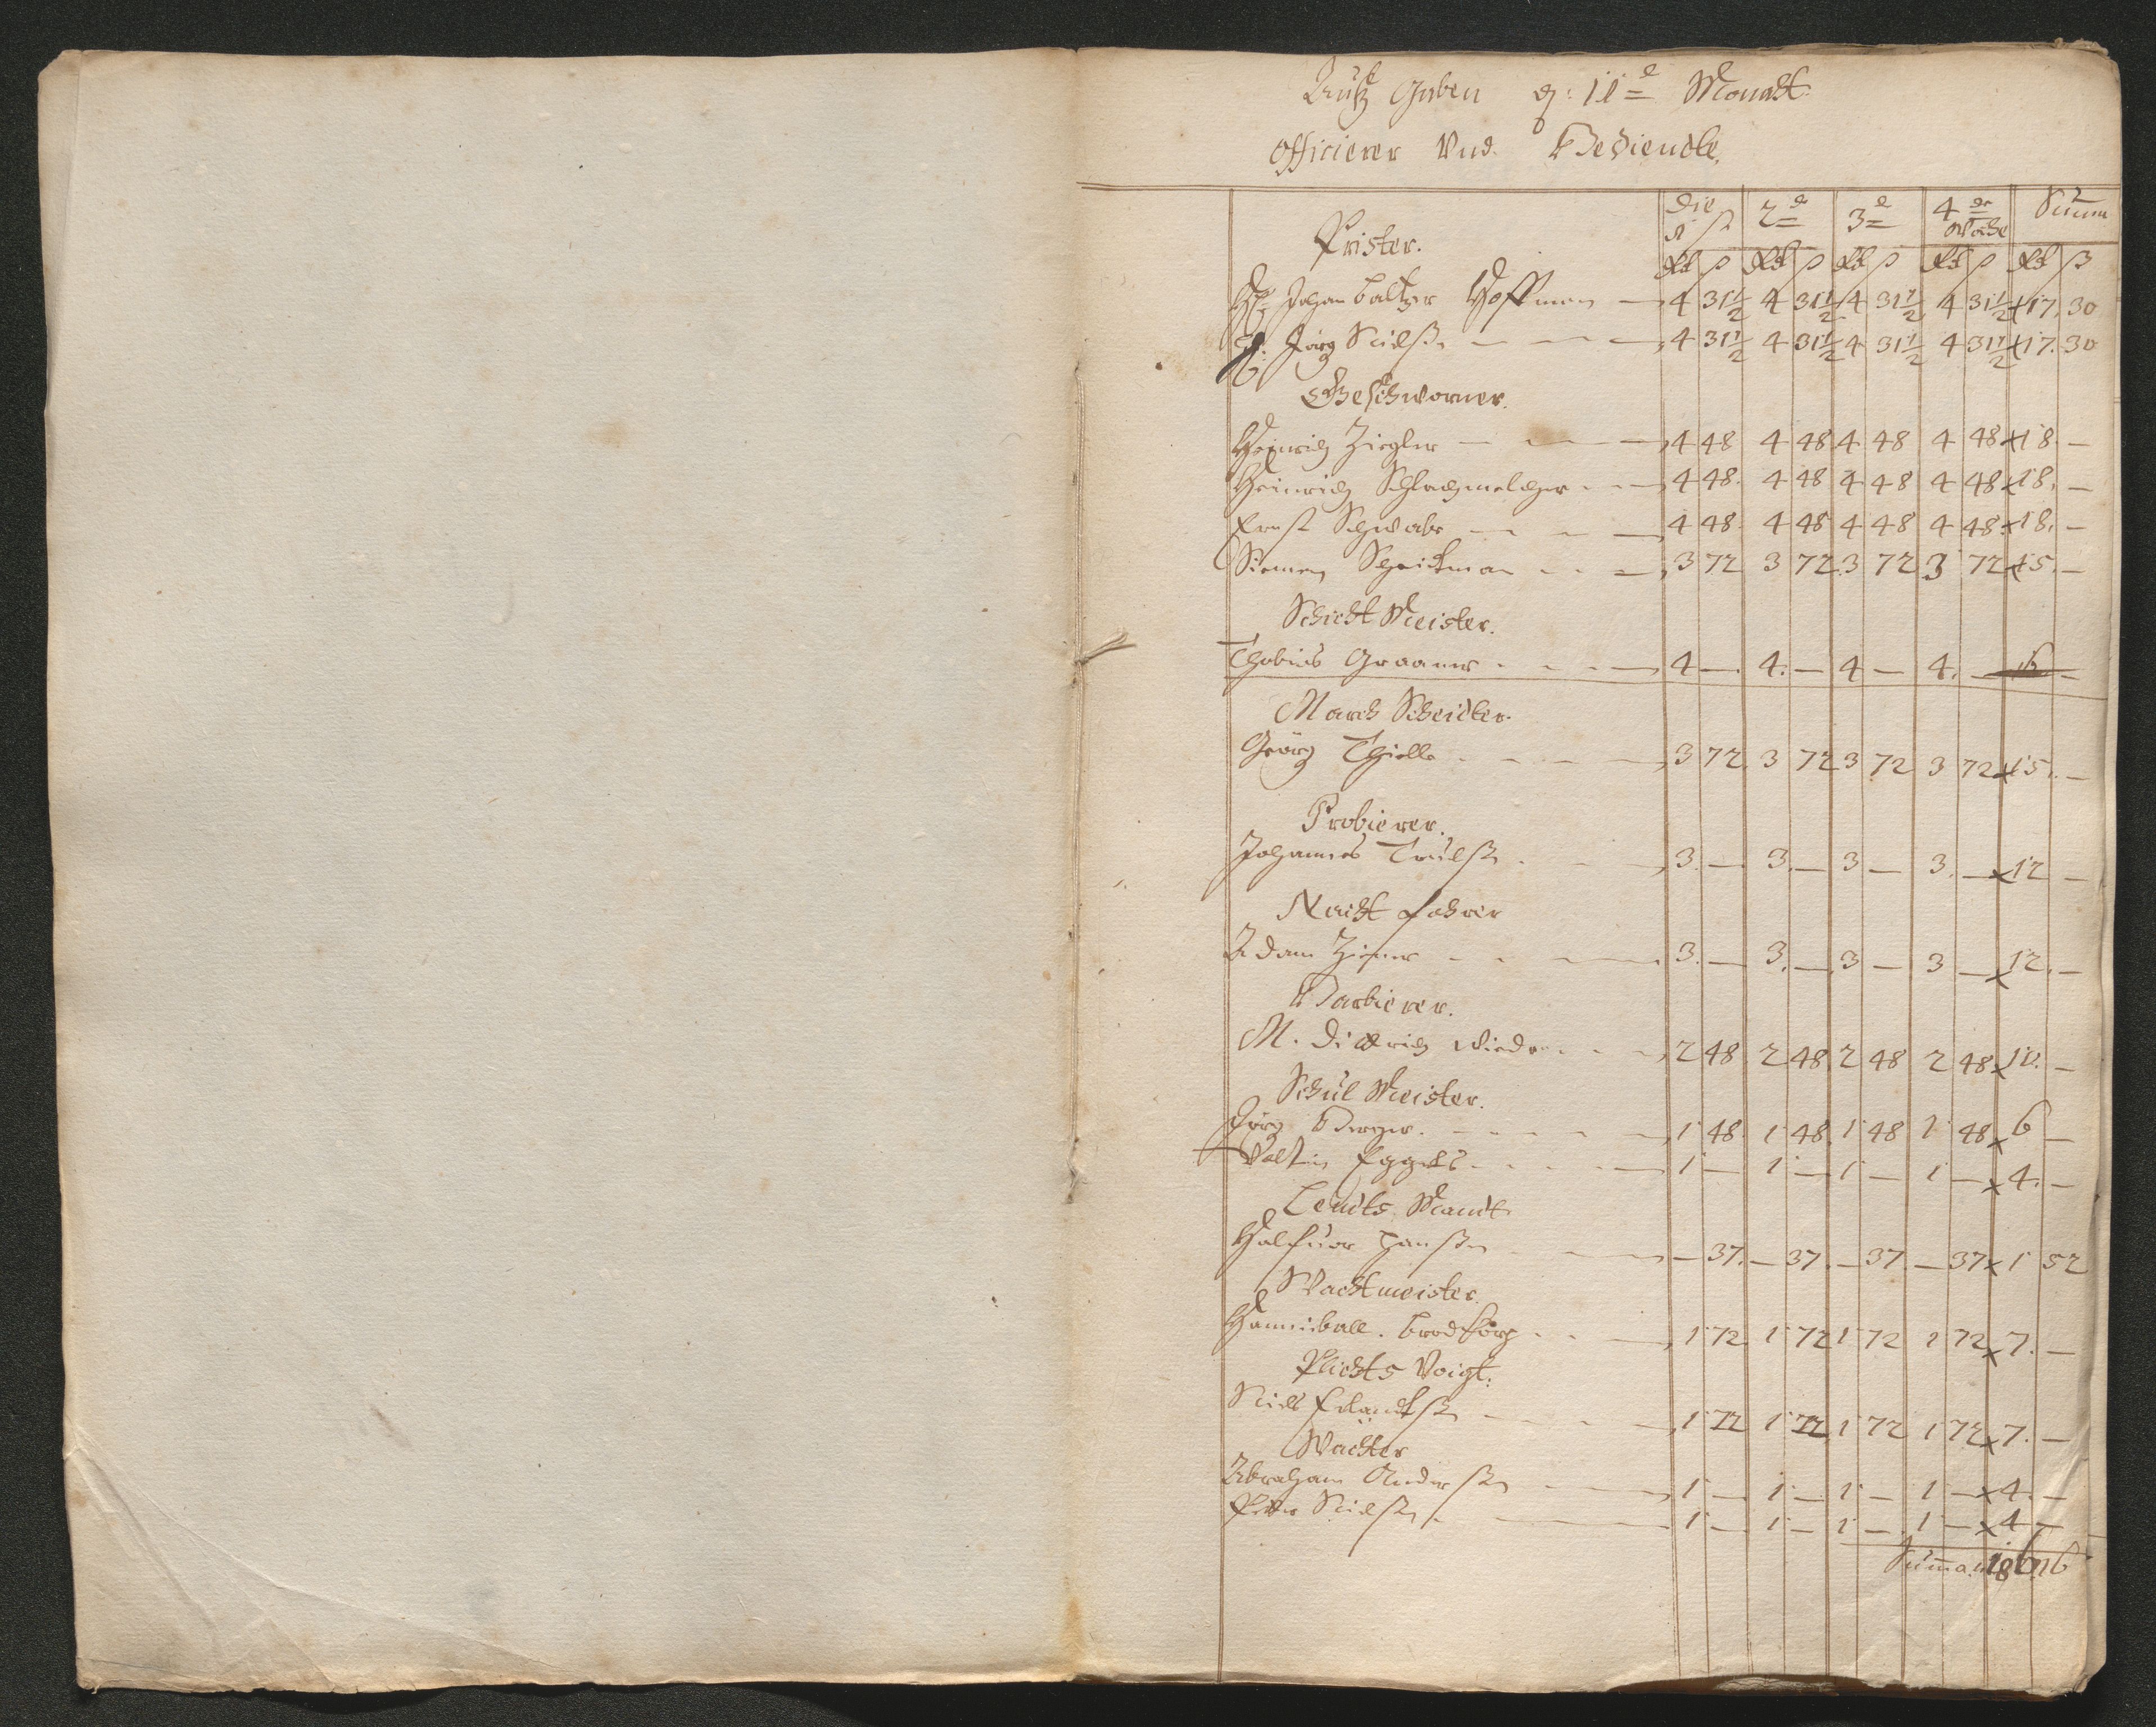 Auß Gaben g: 11 d Monadt
Officierer Vnd Bediendte,
Prister. die 1 st 2 d 3 d 4 de Woche Summ
Rd ß Rd ß Rd ß Rd ß Rd ß
H: Johan Baltzer Hoffman — 4 31½ 4 31½ 4 31½ 4 31½ x 17. 30
H: Jörg Nielße — 4 31½ 4 31½ 4 31½ 4 31½ x 17. 30
Geschworner.
Heinrich Ziegler — 4 48 4 48 4 48 4 48 x 18. —
Heinrich Schlachmelcher — 4 48. 4 48 4 48 4 48 x 18. —
Ernst Schwabe — 4 48 4 48 4 48 4 48 x 18. —
Simen — 3 72 3 72 3 72 3 72 x 15. —
Schicht Meister.
Thobias Graaner — 4 — 4. — 4 — 4. — 16 —
March Scheider.
Geörg Thielle — 3 72 3 72 3 72 3 72 x 15. —
Probierer.
Johannes Trulße — 3. — 3. — 3 — 3. — x 12 —
Nacht fahrer
Adam Ziener — 3. — 3. — 3 — 3 — x 12. —
Barbierer.
M. Dittrich — 2 48 2 48 2 48 2 48 x 10. —
Schul Meister.
Jörg Berger. — 1 48 1 48 1 48 1 48 x 6 —
Valtin — 1 — 1 — 1 — 1 — x 4. —
Halfuor Hanßen — — 37. — 37. — 37. — 37 x 1 52
Wachtmeister.
Hanniball. — 1 72 1 72 1 72 1 72 x 7. —
Plichts Voigt:
Niels — 1 72 1 72 1 72 1 72 x 7. —
Wächter
Abraham Anderßen — 1 — 1 — 1 — 1 — x 4. —
Peter Nielßen — 1 — 1 — 1 — 1 — x 4 —
Summa 186. 16